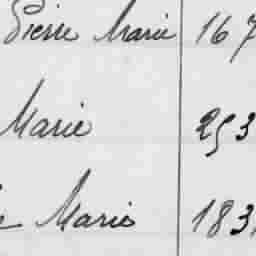 Pierre Marie 167
Marie 253
Marie 183